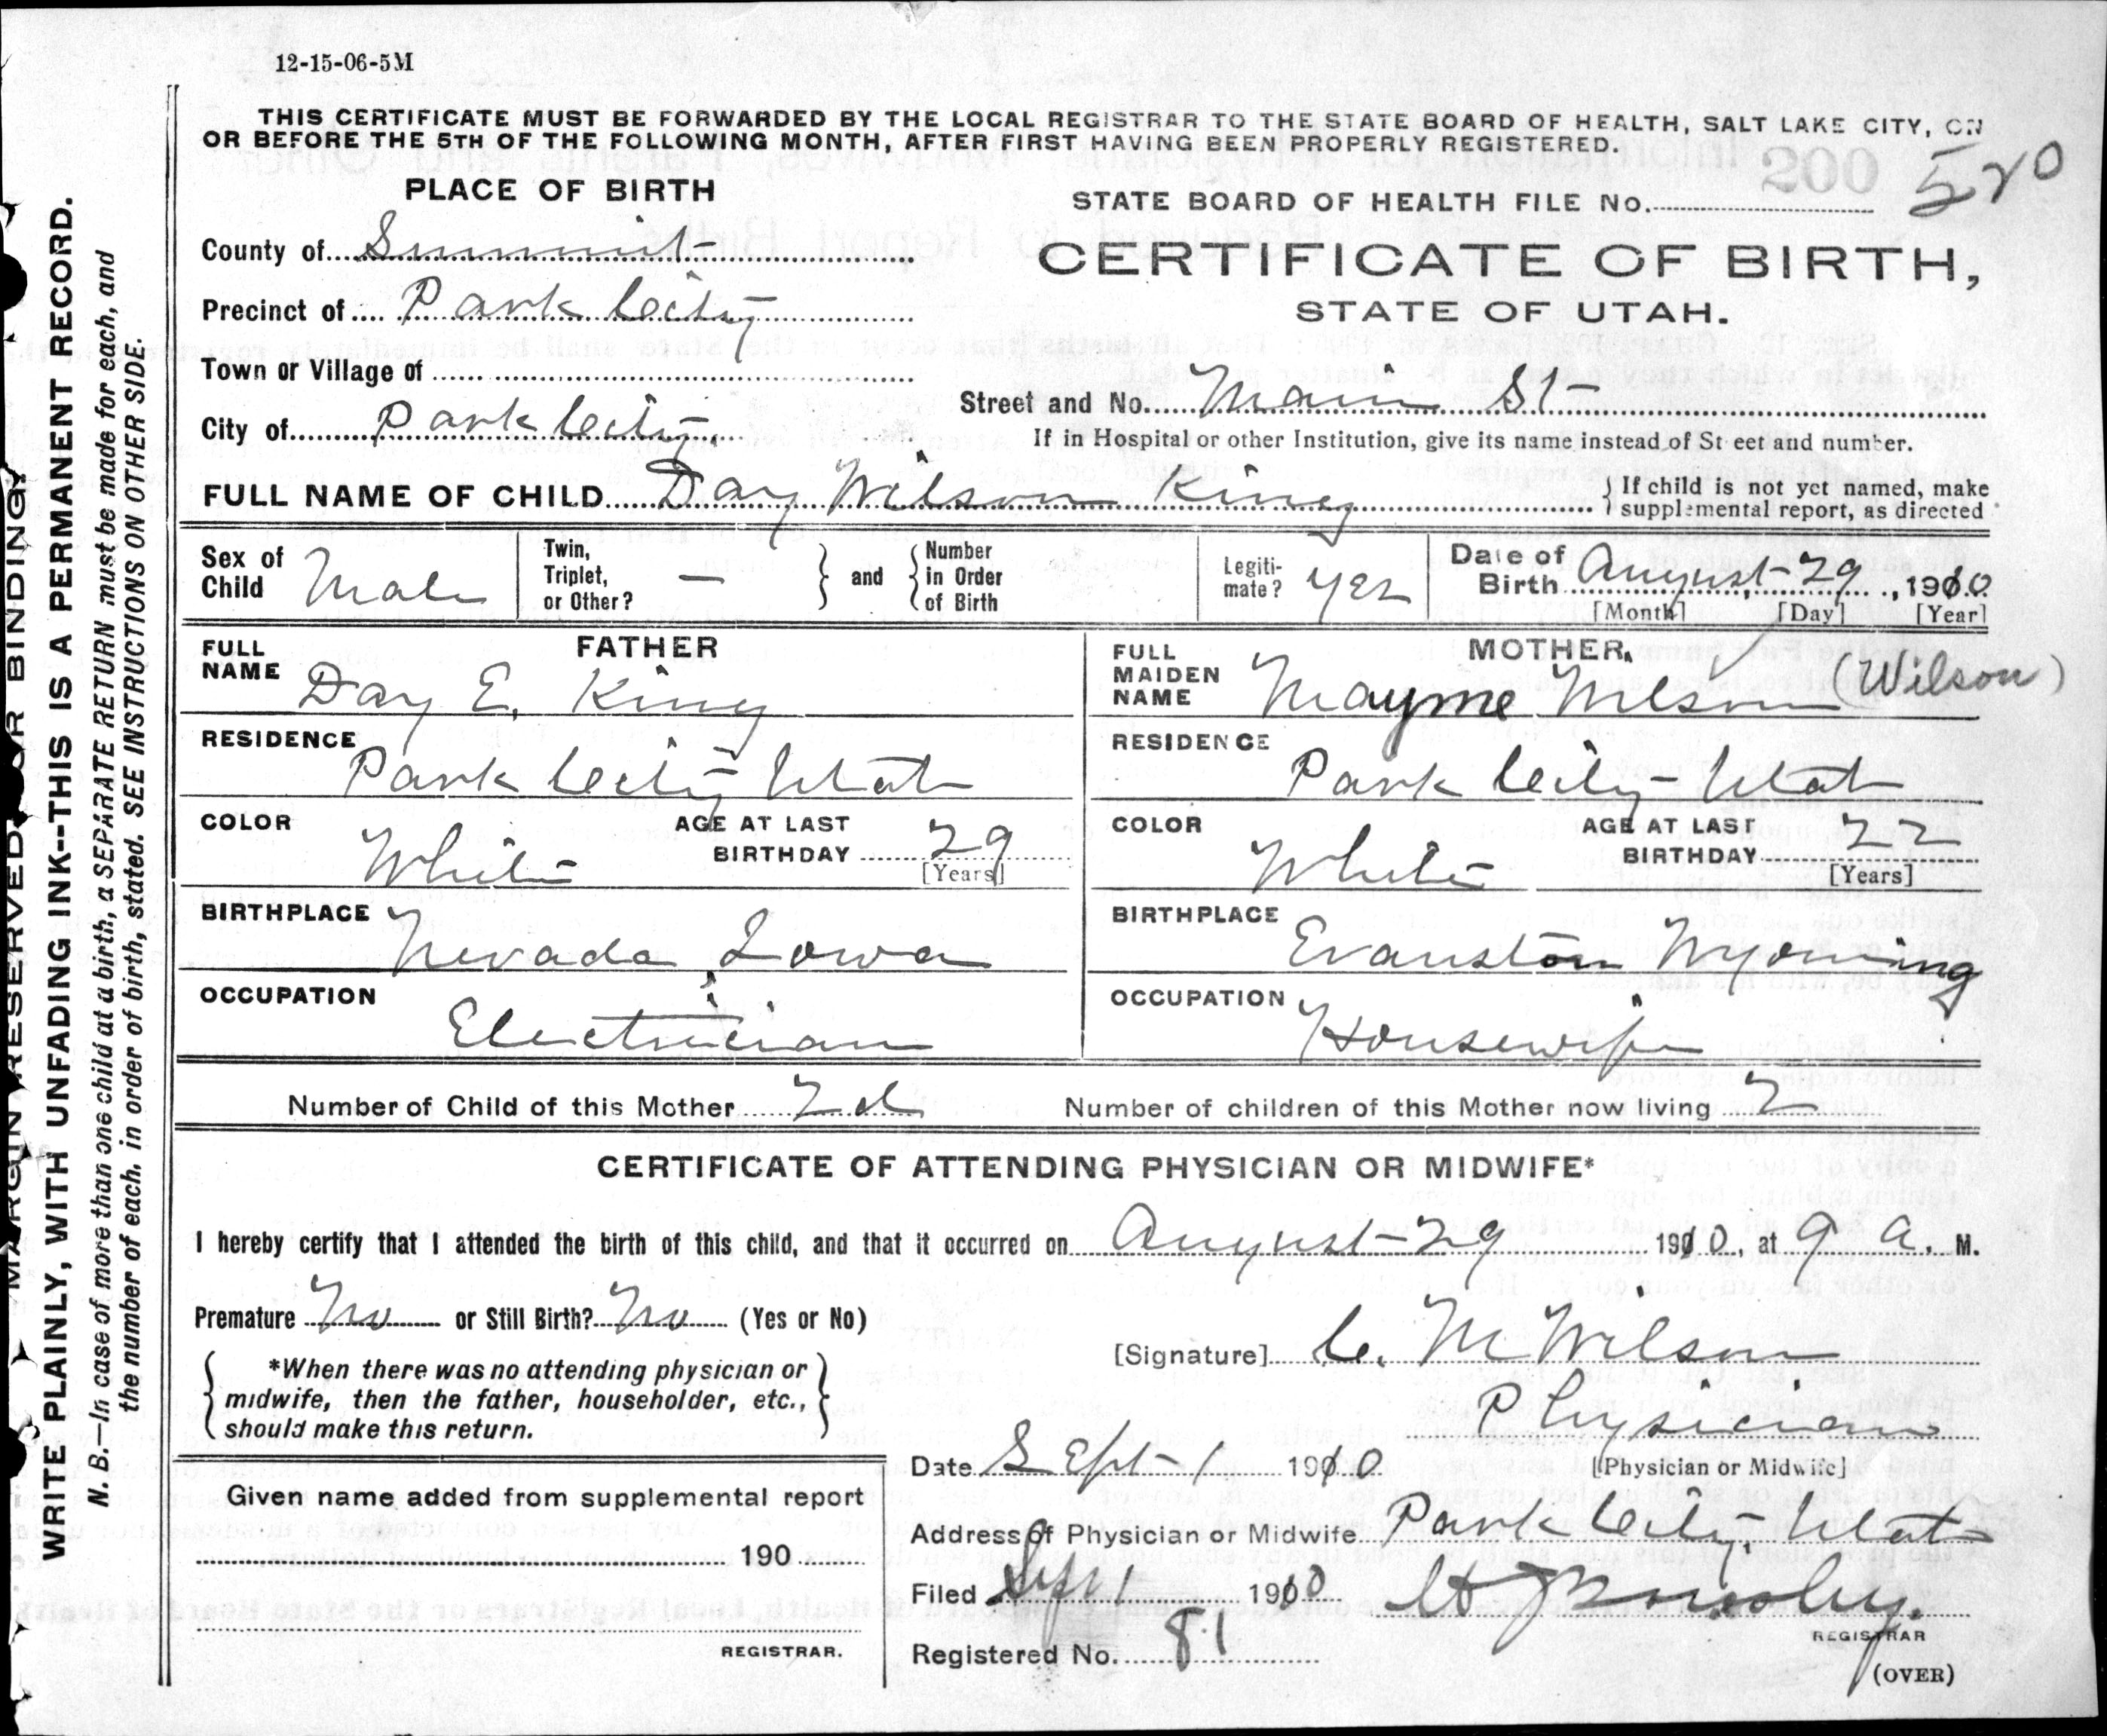 12-15-06-5M
THIS CERTIFICATE MUST BE FORWARDED BY THE LOCAL REGISTRAR TO THE STATE BOARD OF HEALTH, SALT LAKE CITY, ON
OR BEFORE THE 5TH OF THE FOLLOWING MONTH, AFTER FIRST HAVING BEEN PROPERLY REGISTERED.
PLACE OF BIRTH
STATE BOARD OF HEALTH FILE No. 200 520
County of Summit
CERTIFICATE OF BIRTH,
STATE OF UTAH.
Precinct of Park City
Town or Village of
Street and No. Main St
City of Park City
If in Hospital or other Institution, give its name instead of St eet and number.
FULL NAME OF CHILD Day Wilson King
If child is not yet named, make
supplemental report, as directed
Sex of Child Male
Twin, Triplet, or Other? —
and
Number in Order of Birth
Legiti-mate? yes
Date of Birth August 29, 1910
[Month] [Day] [Year]
FATHER
FULL NAME Day E. King
RESIDENCE Park City Utah
COLOR White
AGE AT LAST BIRTHDAY 29
[Years]
BIRTHPLACE Nevada Iowa
OCCUPATION Electrician
MOTHER
FULL MAIDEN NAME Mayme Wilson (Wilson)
RESIDENCE Park City Utah
COLOR White
AGE AT LAST BIRTHDAY 22
[Years]
BIRTHPLACE Evanston Wyoming
OCCUPATION Housewife
Number of Child of this Mother 2d
Number of children of this Mother now living 2
CERTIFICATE OF ATTENDING PHYSICIAN OR MIDWIFE*
I hereby certify that I attended the birth of this child, and that it occurred on August 29 1910, at 9 a. M.
Premature No or Still Birth? No (Yes or No)
[Signature] C. M Wilson
Physician
[Physician or Midwife]
*When there was no attending physician or
midwife, then the father, householder, etc.,
should make this return.
Date Sept 1 1910
Given name added from supplemental report
190
REGISTRAR.
Address of Physician or Midwife Park City, Utah
Filed Sept 1 1910
REGISTRAR
Registered No. 81
(OVER)
MARGIN RESERVED FOR BINDING
WRITE PLAINLY, WITH UNFADING INK--THIS IS A PERMANENT RECORD.
N. B.—In case of more than one child at a birth, a SEPARATE RETURN must be made for each, and
the number of each, in order of birth, stated. SEE INSTRUCTIONS ON OTHER SIDE.